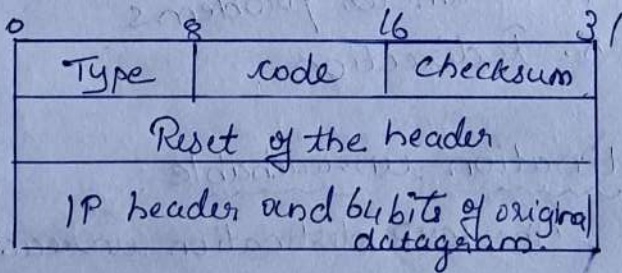 0 8 16 31
Type code checksum
Reset of the header
IP header and 64 bits of original
datagram.